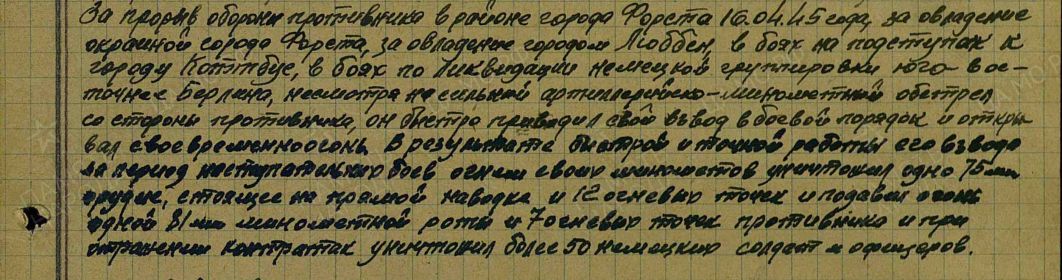 За прорыв обороны противника в районе города Форста 16.04.45 года, за овладение
окраиной города Форста, за овладение городом Люббен, в боях на подступах к
городу Коттбус, в боях по ликвидации немецкой группировки юго-вос-
точнее Берлина, несмотря на сильный артиллерийско-минометный обстрел
со стороны противника, он быстро приводил свой взвод в боевой порядок и откры-
вал своевременно огонь. В результате быстрой и точной работы его взвода
за период наступательных боев огнем своих минометов уничтожил одно 75 мм
орудие, стоящее на прямой наводке и 12 огневых точек и подавил огонь
одной 81 мм минометной роты и 7 огневых точек противника и при
отражении контратак уничтожил более 50 немецких солдат и офицеров.